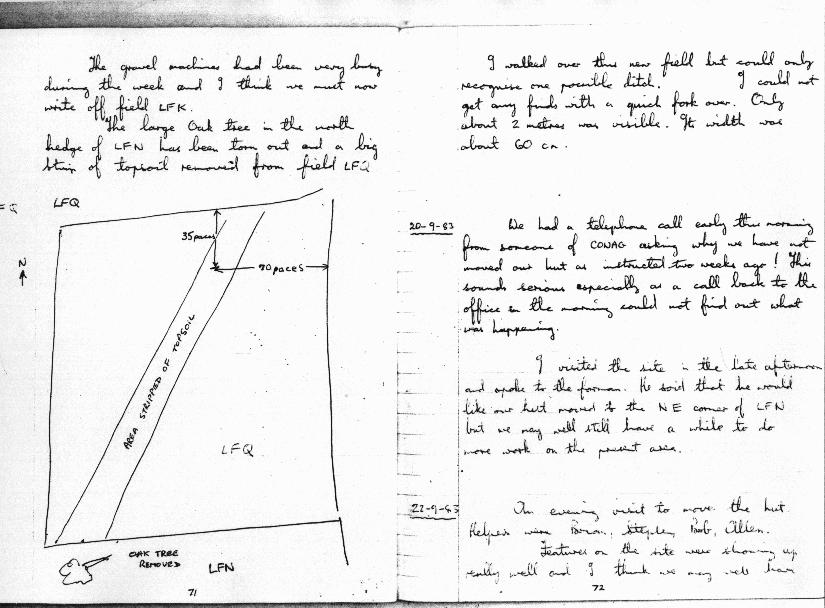 The gravel machines had been very busy
during the week and I think we must now
write off field LFK.
The large Oak tree in the north
hedge of LFN has been torn out and a big
strip of topsoil removed from field LFQ
LFQ
35 paces
70 paces
N
AREA STRIPPED OF TOPSOIL
LFQ
OAK TREE
REMOVED
LFN
71
I walked over this new field but could only
recognise one possible ditch. I could not
get any finds with a quick fork over. Only
about 2 metres was visible. It width was
about 60 cm.
20-9-83
We had a telephone call early this morning
from someone of CONAG asking why we have not
moved our hut as instructed two weeks ago! This
sounds serious especially as a call back to the
office in the morning could not find out what
was happening.
I visited the site in the late afternoon
and spoke to the forman. He said that he would
like our hut moved to the NE corner of LFN
but we may well still have a while to do
more work on the present area.
22-9-83
An evening visit to move the hut.
Helpers were Brian, Stephen, Bob, Allen.
Features on the site were showing up
really well and I think we may well have
72